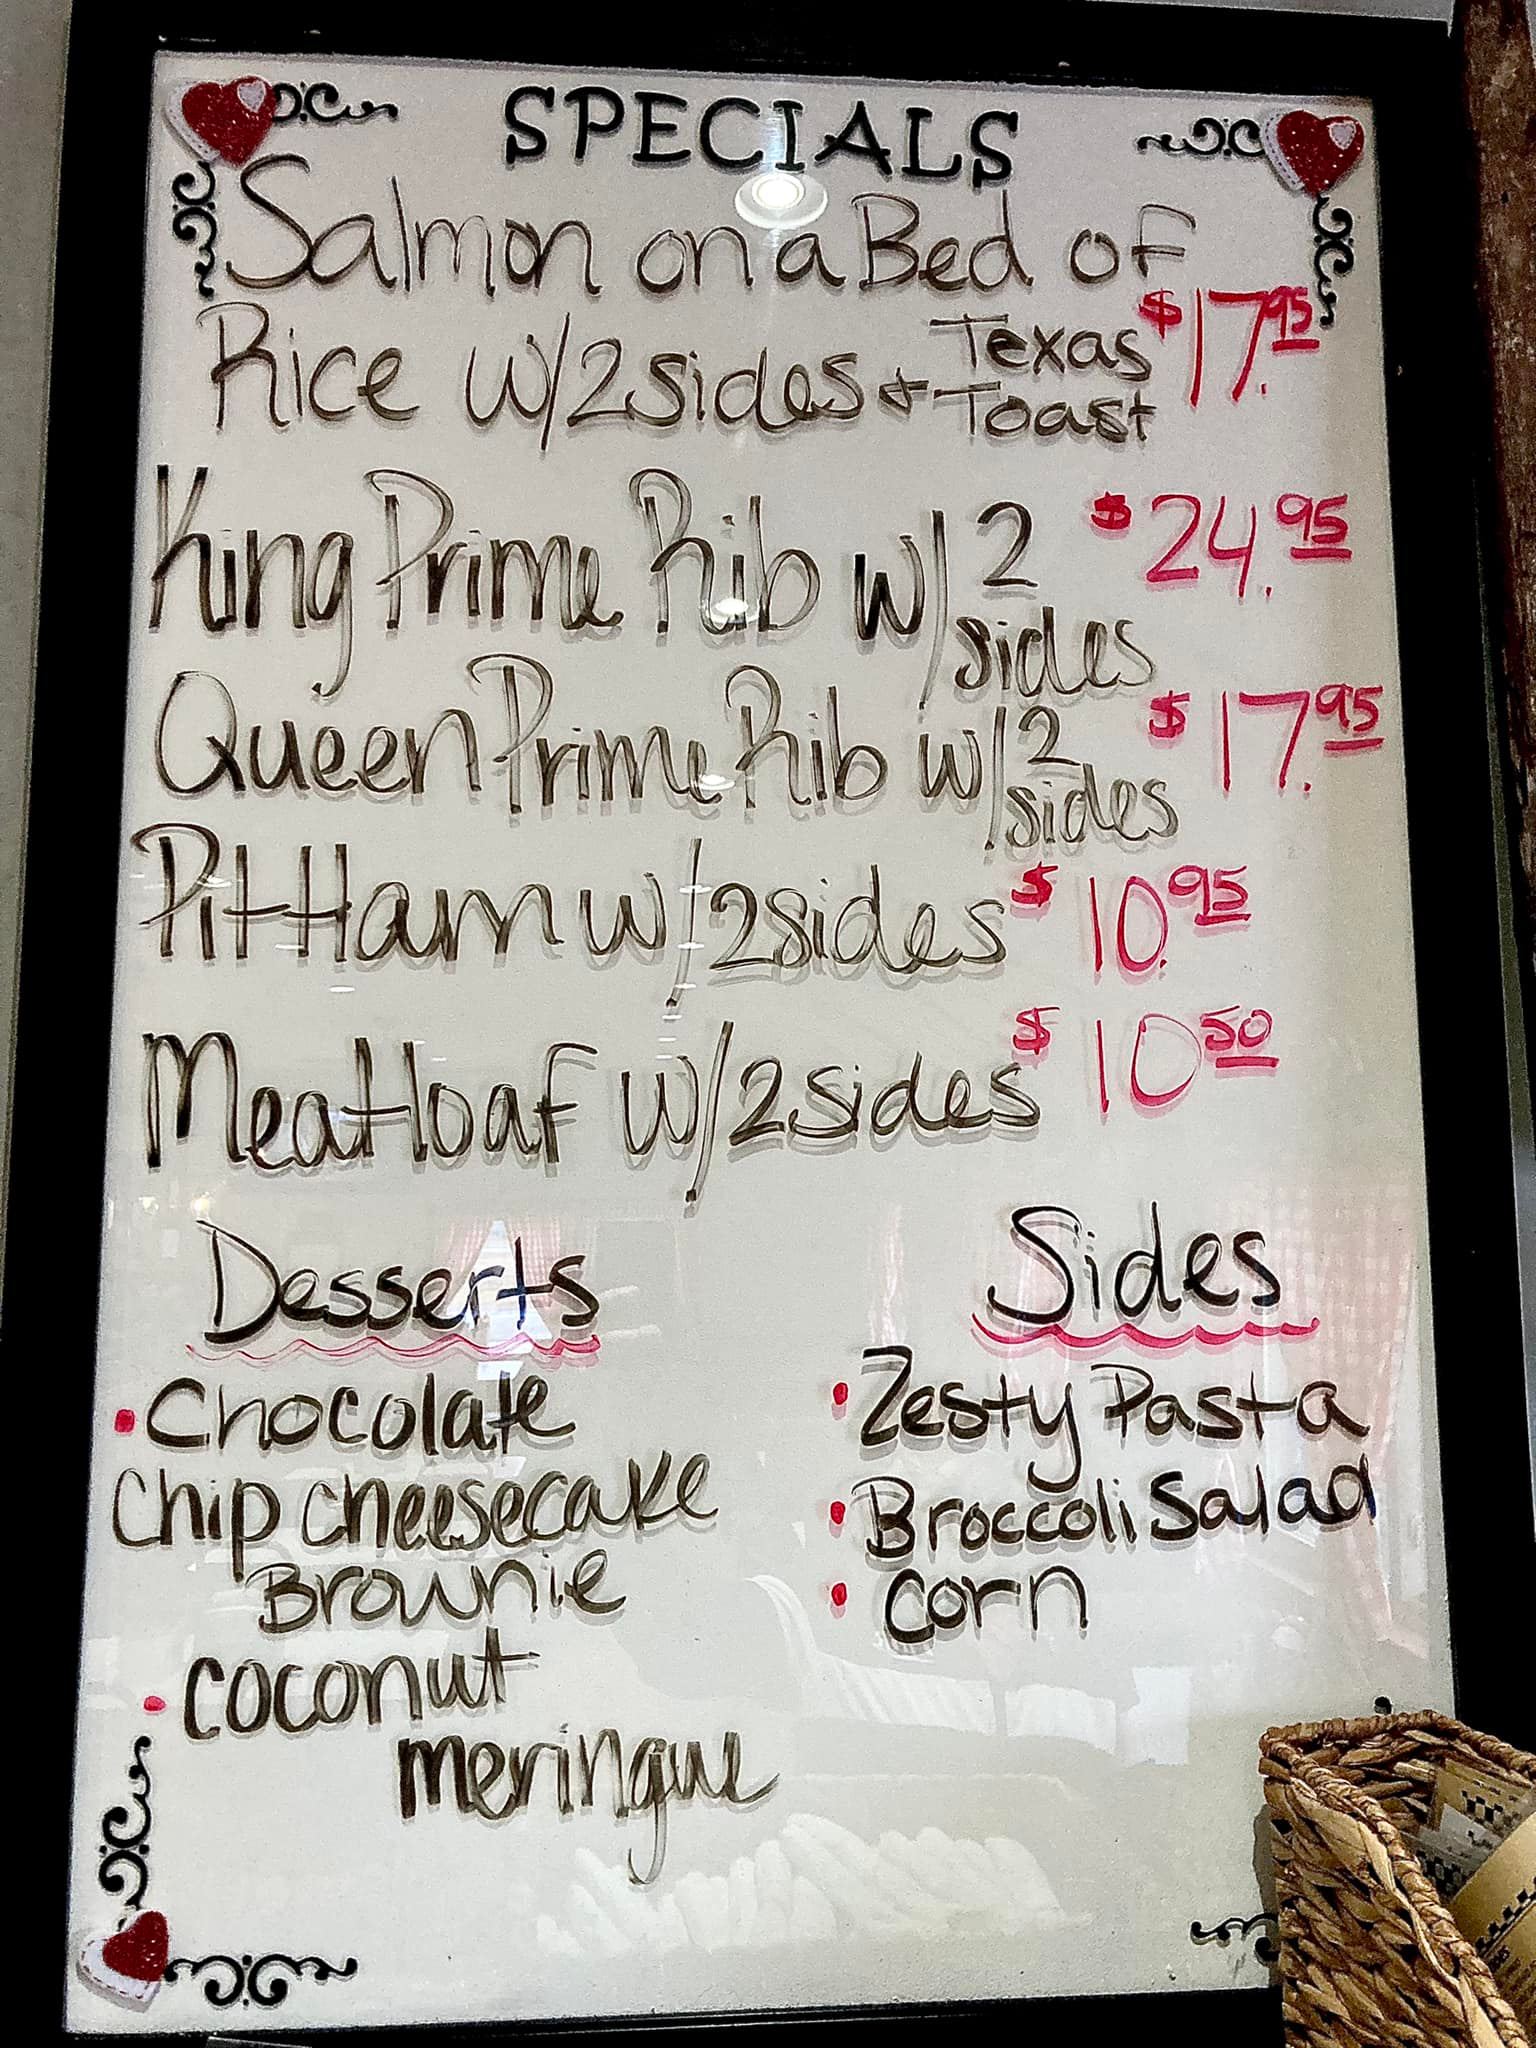 SPECIALS
Salmon on a Bed of
Rice w/2 sides & Texas Toast $17.95
King Prime Rib w/2 sides $24.95
Queen Prime Rib w/2 sides $17.95
Pit Ham w/2 sides $10.95
Meatloaf w/2 sides $10 50
Desserts
• Chocolate
Chip cheesecake
Brownie
• coconut
meringue
Sides
• Zesty Pasta
• Broccoli Salad
• corn